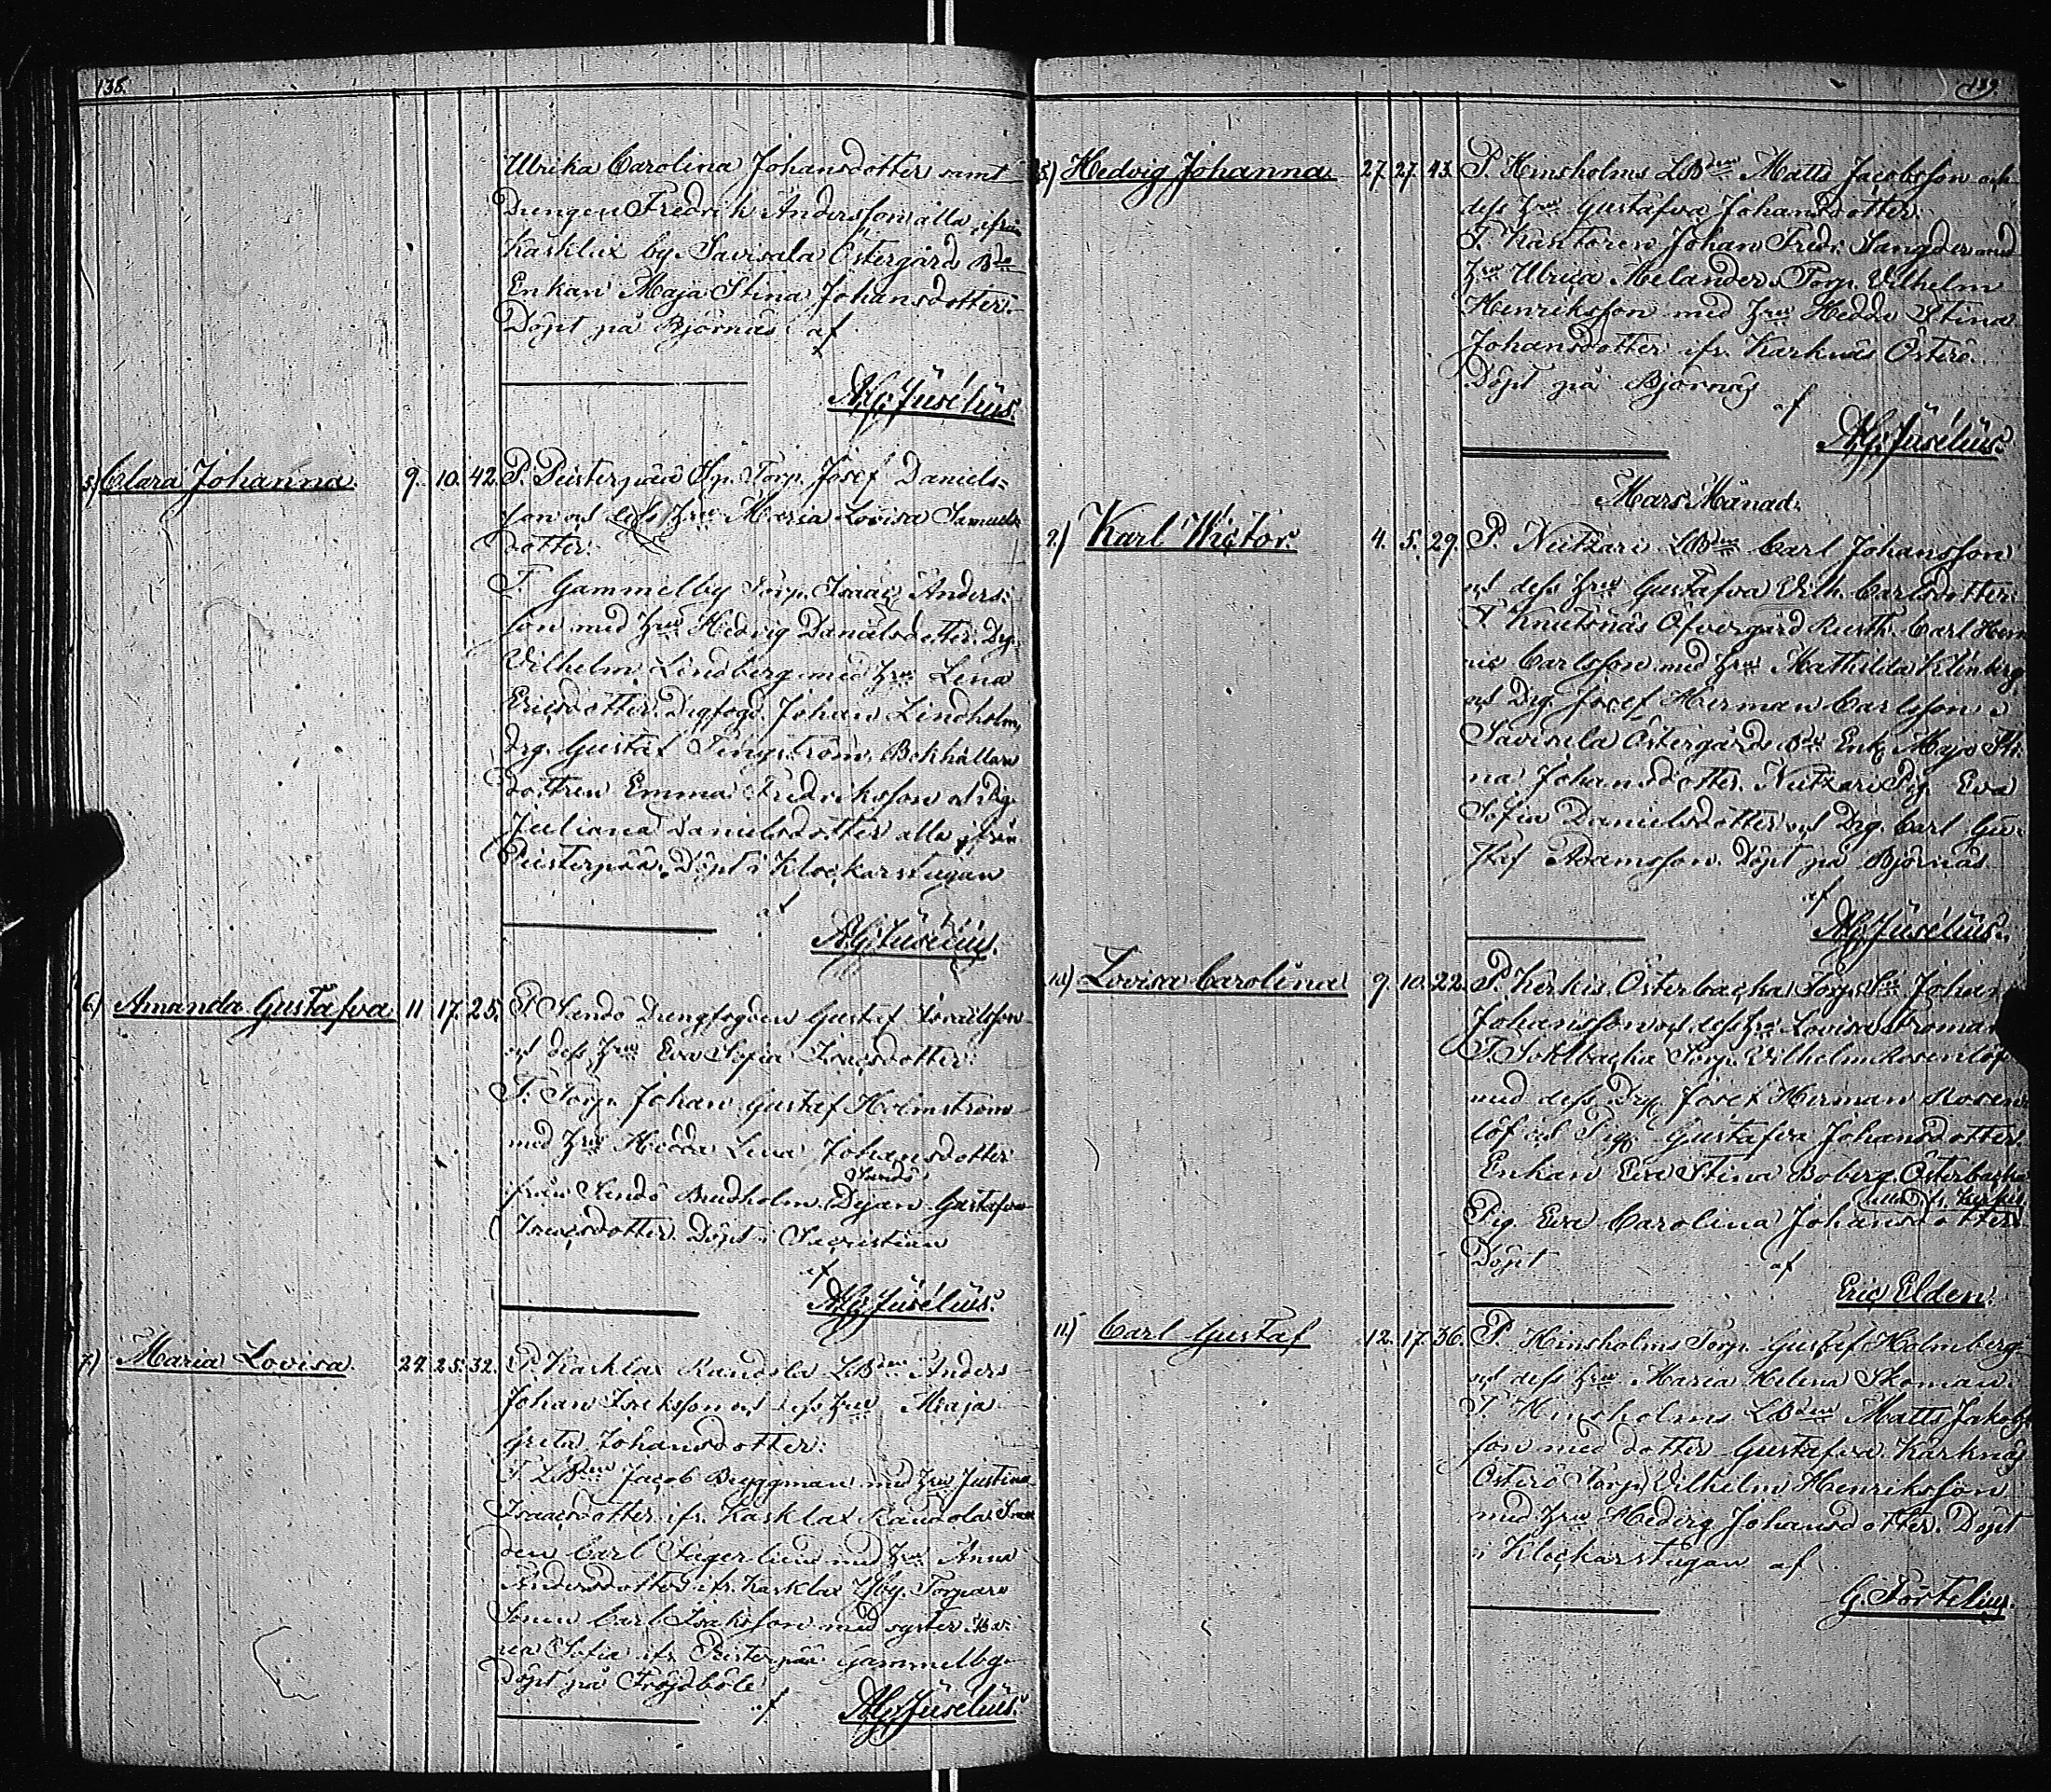 138.
Ulrika Carolina Johansdotter samt
Drengen Fredrik Andersson alla ifrån
Karklax by. Savisala Östergård Bde
Enkan Maja Stina Johansdotter.
Döpt på Björnäs af
A.G. Jusélius.
5.) Clara Johanna 9. 10. 42. P. Peisterpää Sp. Torp. Josef Daniels=
son och dess Hru Maria Lovisa Samuels
dotter.
T. Gammelby Torp. Isaac Anders=
son med Hru Hedvig Danielsdotter. Dg.
Vilhelm Lindberg med Hru Lena
Ericsdotter. Drgfogd. Johan Lindholm,
drg. Gustaf Tengström, Bokhållare
dottren Emma Fredriksson och Pig.
Juliana Danielsdotter alla ifrån
Peisterpää. Döpt i Klockarstugan
af
A.G. Jusélius.
6.) Amanda Gustafva 11 17. 25. P. Sandö Drengfogden Gustaf Israelsson
och dess Hru Eva Sofia Isacsdotter.
T. Torp. Johan Gustaf Holmström
med Hru Hedda Lena Johansdotter
Sandö
ifrån Sandö Brudholm. Pigan Gustafva
Isacsdotter. Döpt i Sacristian
af
A.G. Jusélius.
7.) Maria Lovisa 24. 25. 32. P. Karklax Randola LBden Anders
Johan Isaksson och dess Hru Maja
Greta Johansdotter.
T. LBden Jacob Bryggman med Hru Justina
Isaacsdotter ifr. Karklax Randola.
den Carl Sagerlund med Hru Anna
Andersdotter ifr. Karklax by. Torpare
Sonen Carl Isaksson med syster Ma=
ria Sofia ifr. Peisterpää Gammelby
Döpt på Fröjdböle
af A.G. Jusélius.
139.
8.) Hedvig Johanna 27. 27. 43. P. Hinsholms LBden Matts Jacobsson och
dess Hru Gustafva Johansdotter.
T. Kantoren Johan Fredr. Sangder med
Hru Ulrica Melander. Torp. Vilhelm
Henriksson med Hru Hedda Stina
Johansdotter ifr. Karknäs Österö.
Döpt på Björnäs
af
A.G. Jusélius.
Mars Månad.
9.) Karl Wictor. 4. 5. 29. P. Neitzari LBden Carl Johansson
och dess Hru Gustafva Vilh. Carlsdotter.
T. Knutsnäs Öfvergård Rusth. Carl Hen
ric Carlsson med Hru Mathilda Klinberg
och Drg. Josef Herman Carlsson.
Savisela Östergårds Bde Enk. Maja Sti=
na Johansdotter. Neitzari Pig. Eva
Sofia Danielsdotter och Drg. Carl Gu=
staf Adamsson. Döpt på Björnäs
af
A.G. Jusélius.
10.) Lovisa Carolina 9. 10. 22. P. Kerkis Österbacka Torp. Sn Johan
Johansson och dess Hru Lovisa Froman
T. Soklbacka Torp. Vilhelm Rosenlöf
med dess Drg. Josef Herman Rosen
löf och Pig. Gustafva Johansdotter.
Enkan Eva Stina Boberg. Österbacka
Pig. Eva Carolina Johansdotter.
Döpt af
Eric Elden.
11.) Carl Gustaf 12. 17. 36. P. Hinsholms Torp. Gustaf Holmberg
och dess Hru Maria Helena Skoman.
T. Hinsholms LBden Matts Jakobs
son med dotter Gustafva. Karknäs
Österö Torp. Vilhelm Henriksson
med Hru Hedvig Johansdotter. Döpt
i Klockarstugan af
G. Förtelius.